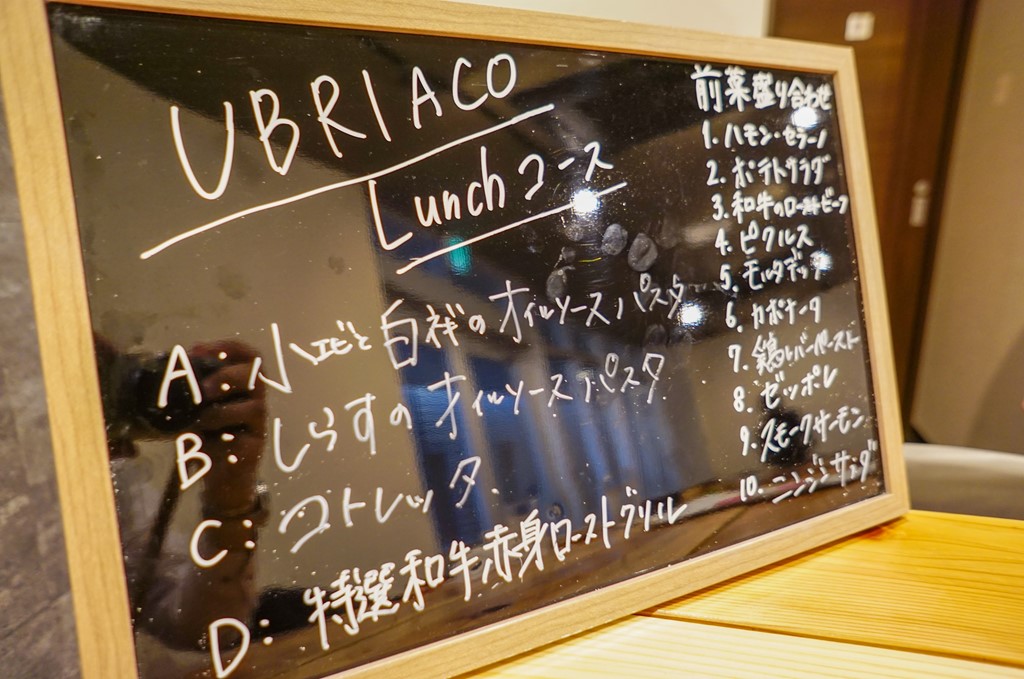 UBRIACO
Lunchコース
A:小エビと白衫のオイルソースパスタ
B:しらすのオイルソースパスタ
C:コトレッタ.
D:特選和牛赤身ローストグリル
前菜盛り合わせ
1.ハモン・セラーノ
2.ポテトサラダ
3.和牛のローストビーフ
4.ピクルス
5.モルタデッラ
6.カポナータ
7.鶏レバーペースト
8.ゼッポレ
9.スモークサーモン
10.ニンジンサラダ